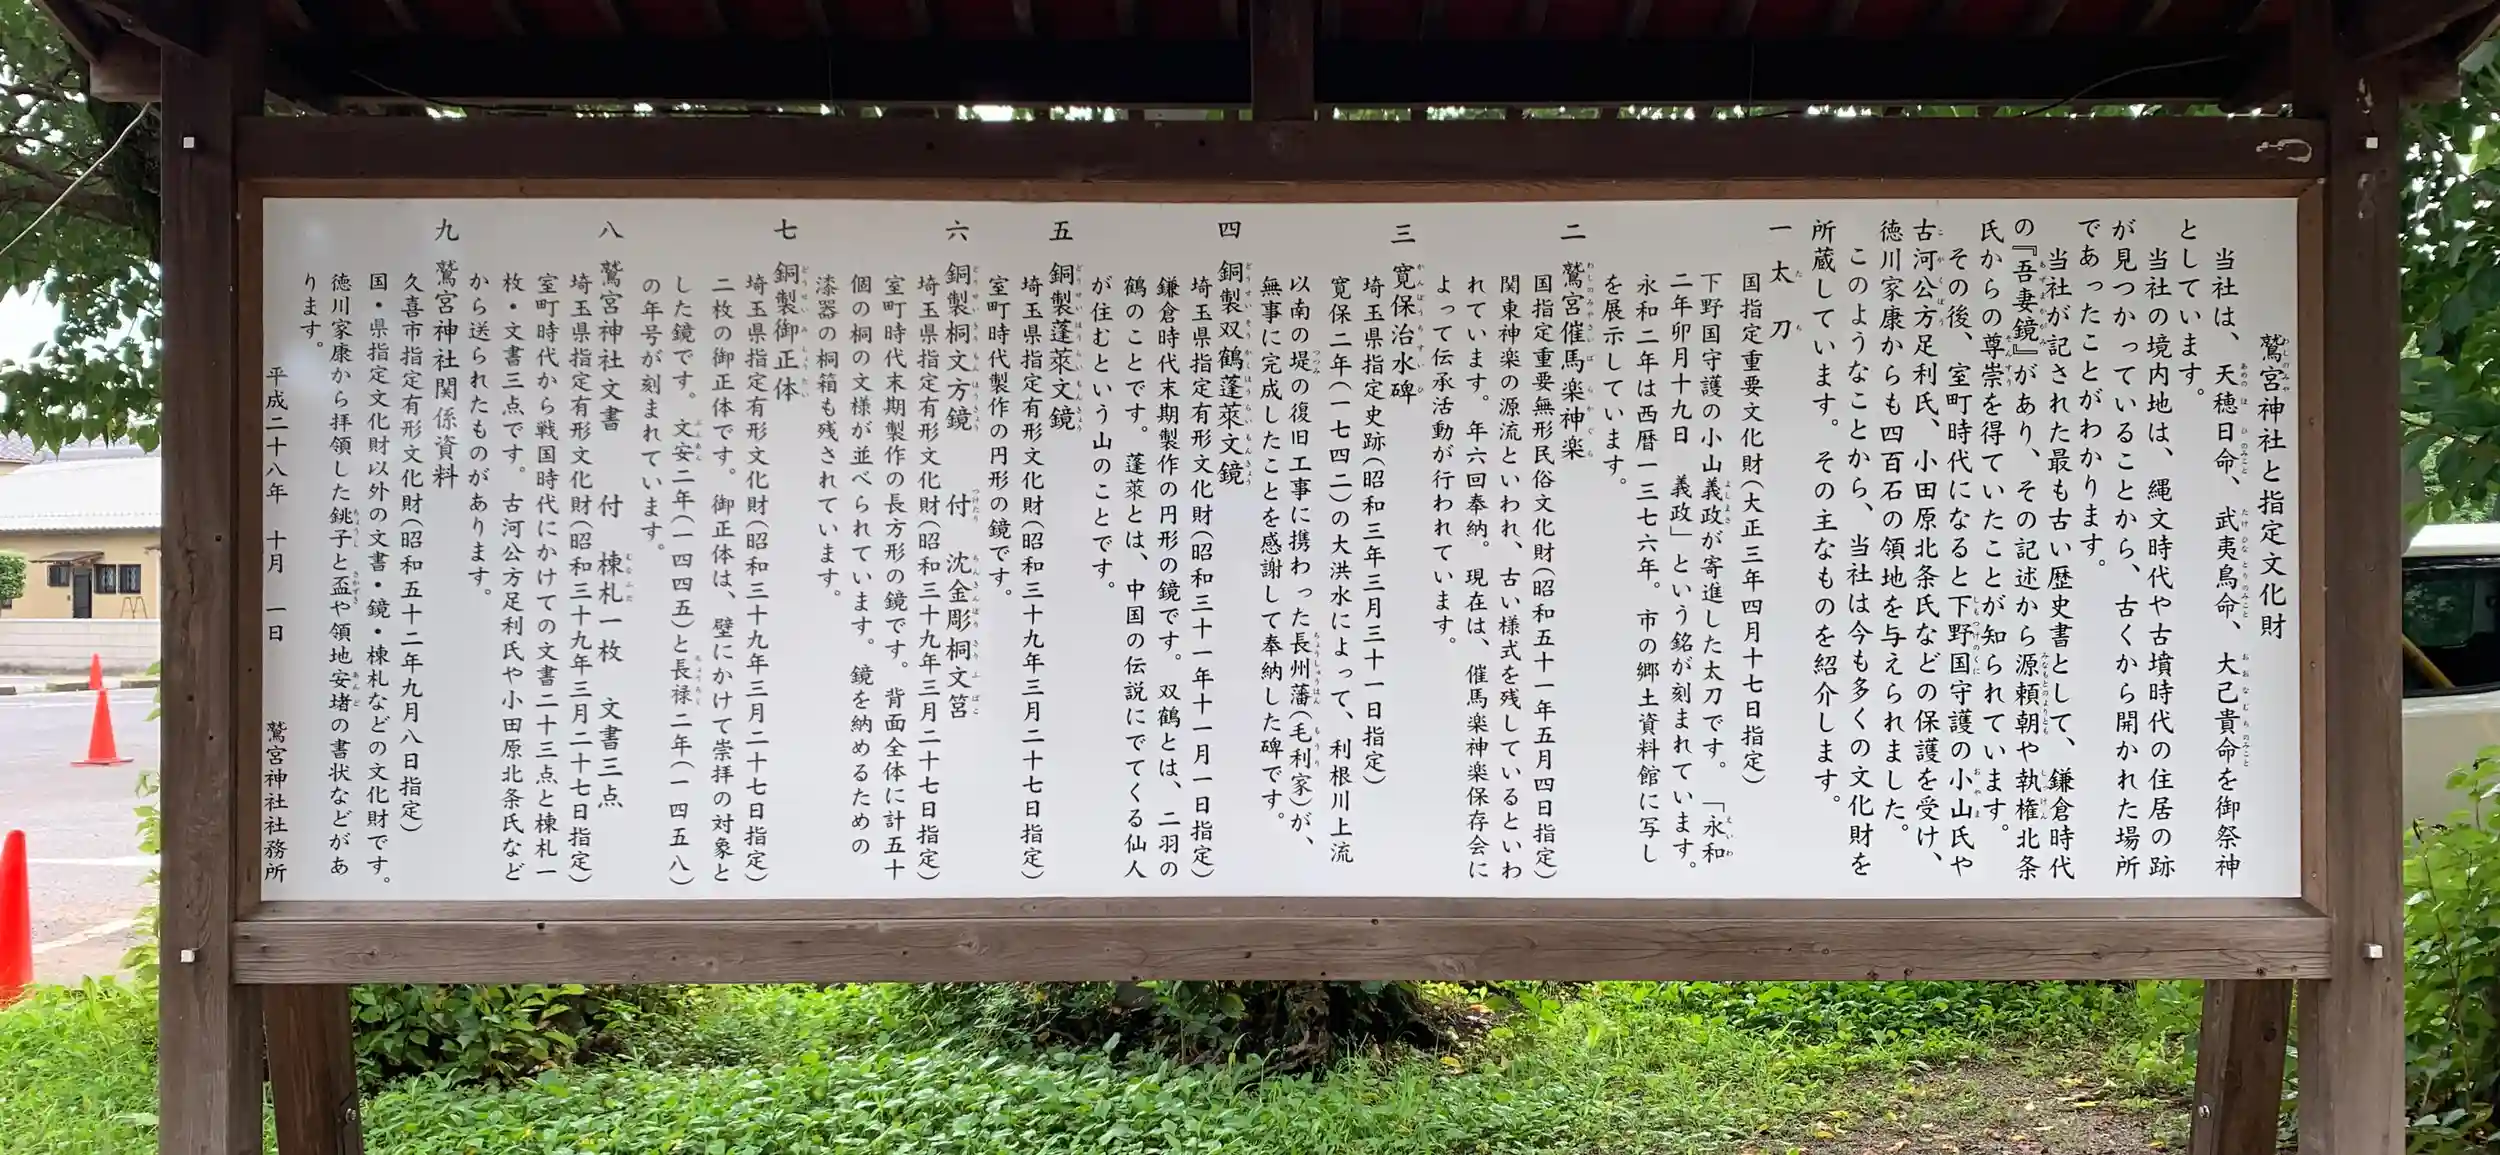 鷲宮神社と指定文化財
当社は、天穂日命、武夷鳥命、大己貴命を御祭神
としています。
当社の境内地は、縄文時代や古墳時代の住居の跡
が見つかっていることから、古くから開かれた場所
であったことがわかります。
当社が記された最も古い歴史書として、鎌倉時代
の『吾妻鏡』があり、その記述から源頼朝や執権北条
氏からの尊崇を得ていたことが知られています。
その後、室町時代になると下野国守護の小山氏や
古河公方足利氏、小田原北条氏などの保護を受け、
徳川家康からも四百石の領地を与えられました。
このようなことから、当社は今も多くの文化財を
所蔵しています。その主なものを紹介します。
一 太刀
国指定重要文化財(大正三年四月十七日指定)
下野国守護の小山義政が寄進した太刀です。「永和
二年卯月十九日 義政」という銘が刻まれています。
永和二年は西暦一三七六年。市の郷土資料館に写し
を展示しています。
二 鷲宮催馬楽神楽
国指定重要無形民俗文化財(昭和五十一年五月四日指定)
関東神楽の源流といわれ、古い様式を残しているといわ
れています。年六回奉納。現在は、催馬楽神楽保存会に
よって伝承活動が行われています。
三 寛保治水碑
埼玉県指定史跡(昭和三年三月三十一日指定)
寛保二年(一七四二)の大洪水によって、利根川上流
以南の堤の復旧工事に携わった長州藩(毛利家)が、
無事に完成したことを感謝して奉納した碑です。
四 銅製双鶴蓬萊文鏡
埼玉県指定有形文化財(昭和三十一年十一月一日指定)
鎌倉時代末期製作の円形の鏡です。双鶴とは、二羽の
鶴のことです。蓬萊とは、中国の伝説にでてくる仙人
が住むという山のことです。
五 銅製蓬萊文鏡
埼玉県指定有形文化財(昭和三十九年三月二十七日指定)
室町時代製作の円形の鏡です。
六 銅製桐文方鏡 付 沈金彫桐文筥
埼玉県指定有形文化財(昭和三十九年三月二十七日指定)
室町時代末期製作の長方形の鏡です。背面全体に計五十
個の桐の文様が並べられています。鏡を納めるための
漆器の桐箱も残されています。
七 銅製御正体
埼玉県指定有形文化財(昭和三十九年三月二十七日指定)
二枚の御正体です。御正体は、壁にかけて崇拝の対象と
した鏡です。文安二年(一四四五)と長禄二年(一四五八)
の年号が刻まれています。
八 鷲宮神社文書 付 棟札一枚 文書三点
埼玉県指定有形文化財(昭和三十九年三月二十七日指定)
室町時代から戦国時代にかけての文書二十三点と棟札一
枚・文書三点です。古河公方足利氏や小田原北条氏など
から送られたものがあります。
九 鷲宮神社関係資料
久喜市指定有形文化財(昭和五十二年九月八日指定)
国・県指定文化財以外の文書・鏡・棟札などの文化財です。
徳川家康から拝領した銚子と盃や領地安堵の書状などがあ
ります。
平成二十八年 十月 一日 鷲宮神社社務所